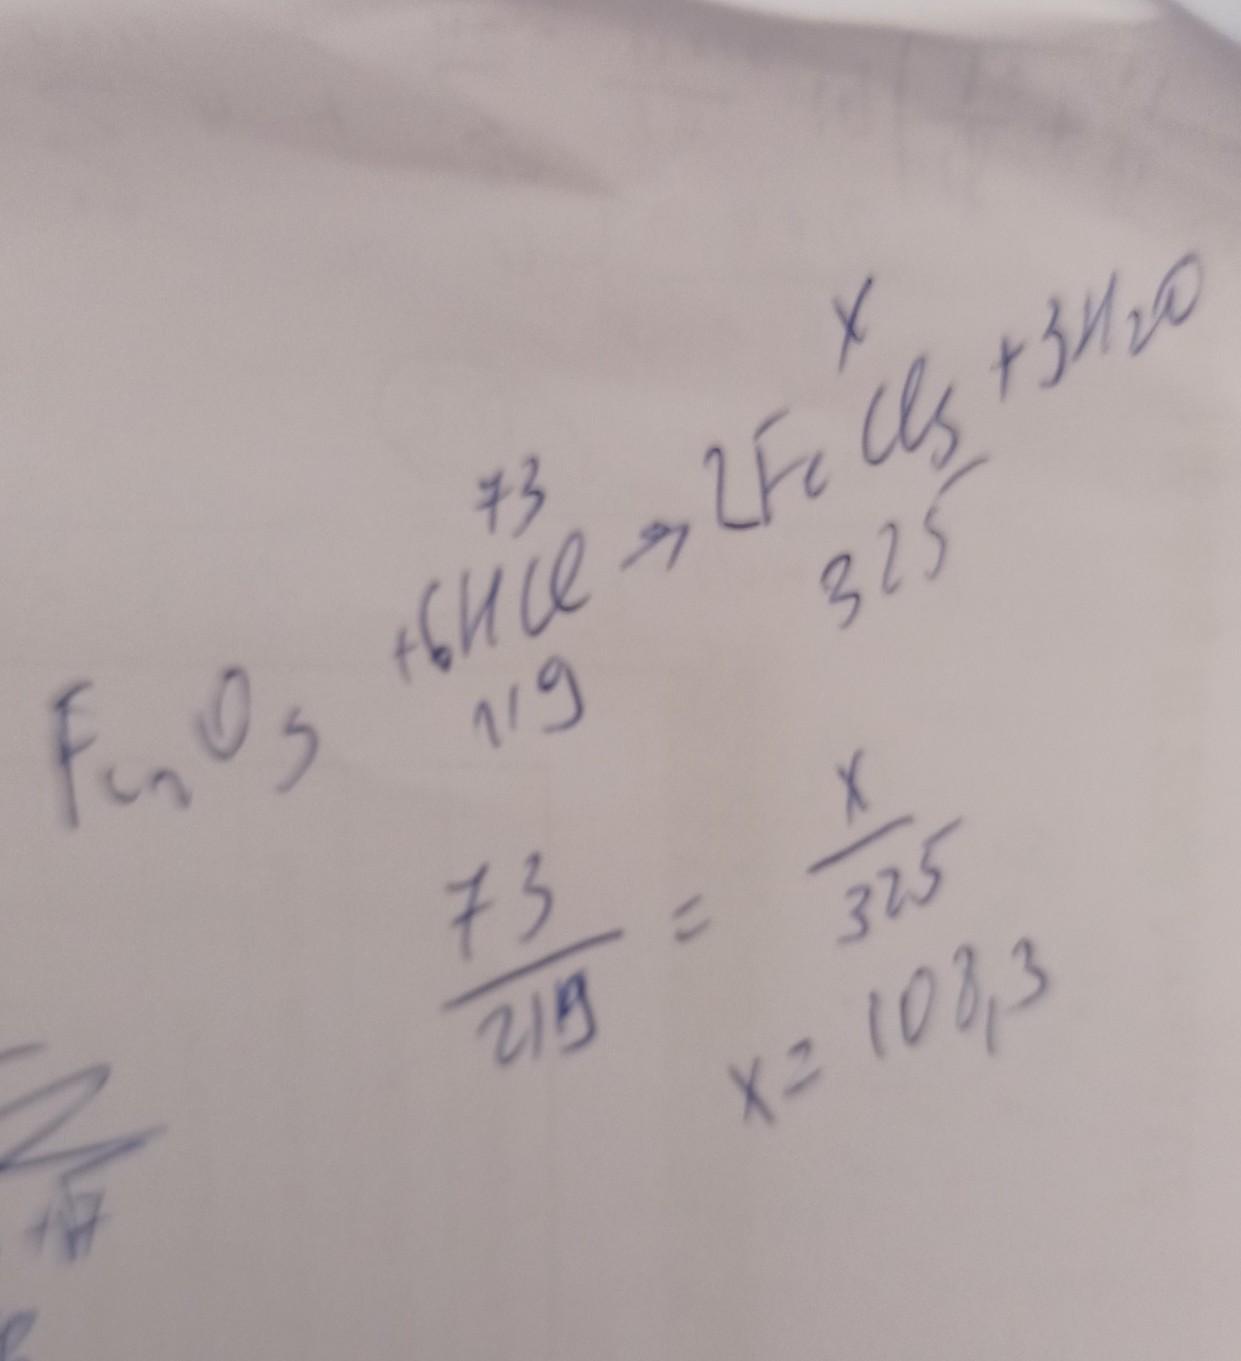 x
73
Fe2O3 +6HCl → 2FeCl3 +3H2O
219 325
73/219 = x/325
x = 108,3